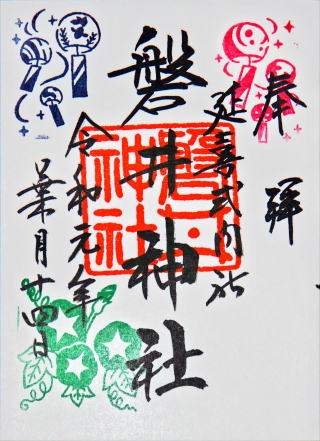 奉拝
延喜式内社
磐井神社
磐井神社
令和元年
葉月廿四日